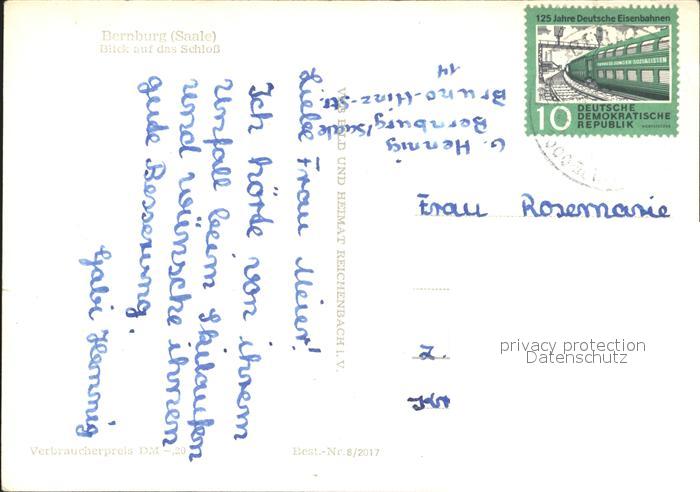 Bernburg (Saale)
Blick auf das Schloß
Liebe Frau Meier!
Ich hörte von ihrem
Unfall beim Skilaufen
und wünsche ihnen
gute Besserung.
Gabi Hennig
Verbraucherpreis DM -,20
Best.-Nr. 8/2017
VEB BILD UND HEIMAT REICHENBACH i. V.
G. Hennig
Bernburg/Saale
Bruno-Hinz-Str.
14
125 Jahre Deutsche Eisenbahnen
10 DEUTSCHE
DEMOKRATISCHE
REPUBLIK
Frau Rosemarie
Z.
privacy protection
Datenschutz